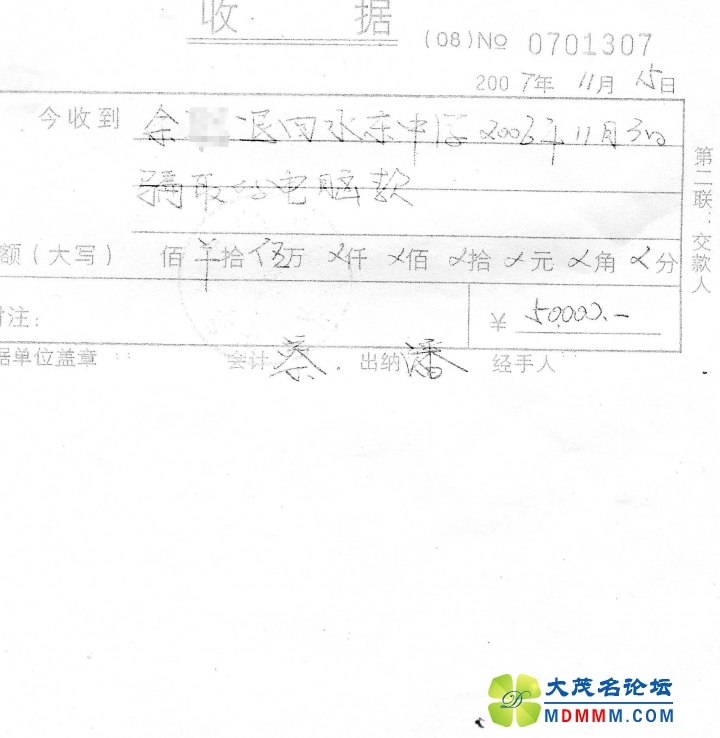 收 据
(08)№ 0701307
2007年 11月 15日
今收到 余 退回水东中学2003年11月30日
骗取的电脑款
额(大写) 佰 拾 伍万 仟 佰 拾 元 角 分
¥ 50,000.-
注:
据单位盖章 会计 蔡 出纳 潘 经手人
第二联:交款人
大茂名论坛
MDMMM.COM